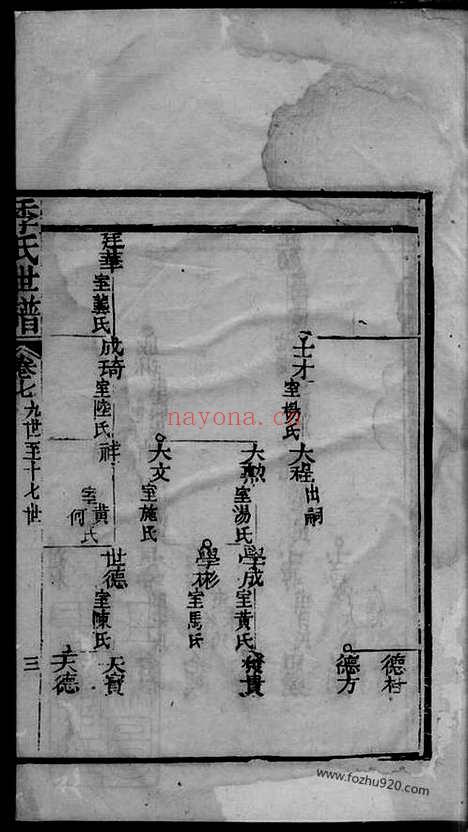 德村
德方
士才室楊氏
大程出嗣
大勲室湯氏
學成室黃氏
貴
學彬室馬氏
大文室施氏
廷華室龔氏
成琦室陸氏
祥室黃何氏
世德室陳氏
天寶
天德
季氏世譜
卷七
九世至十七世
三
nayona.cn
www.fozhu920.com